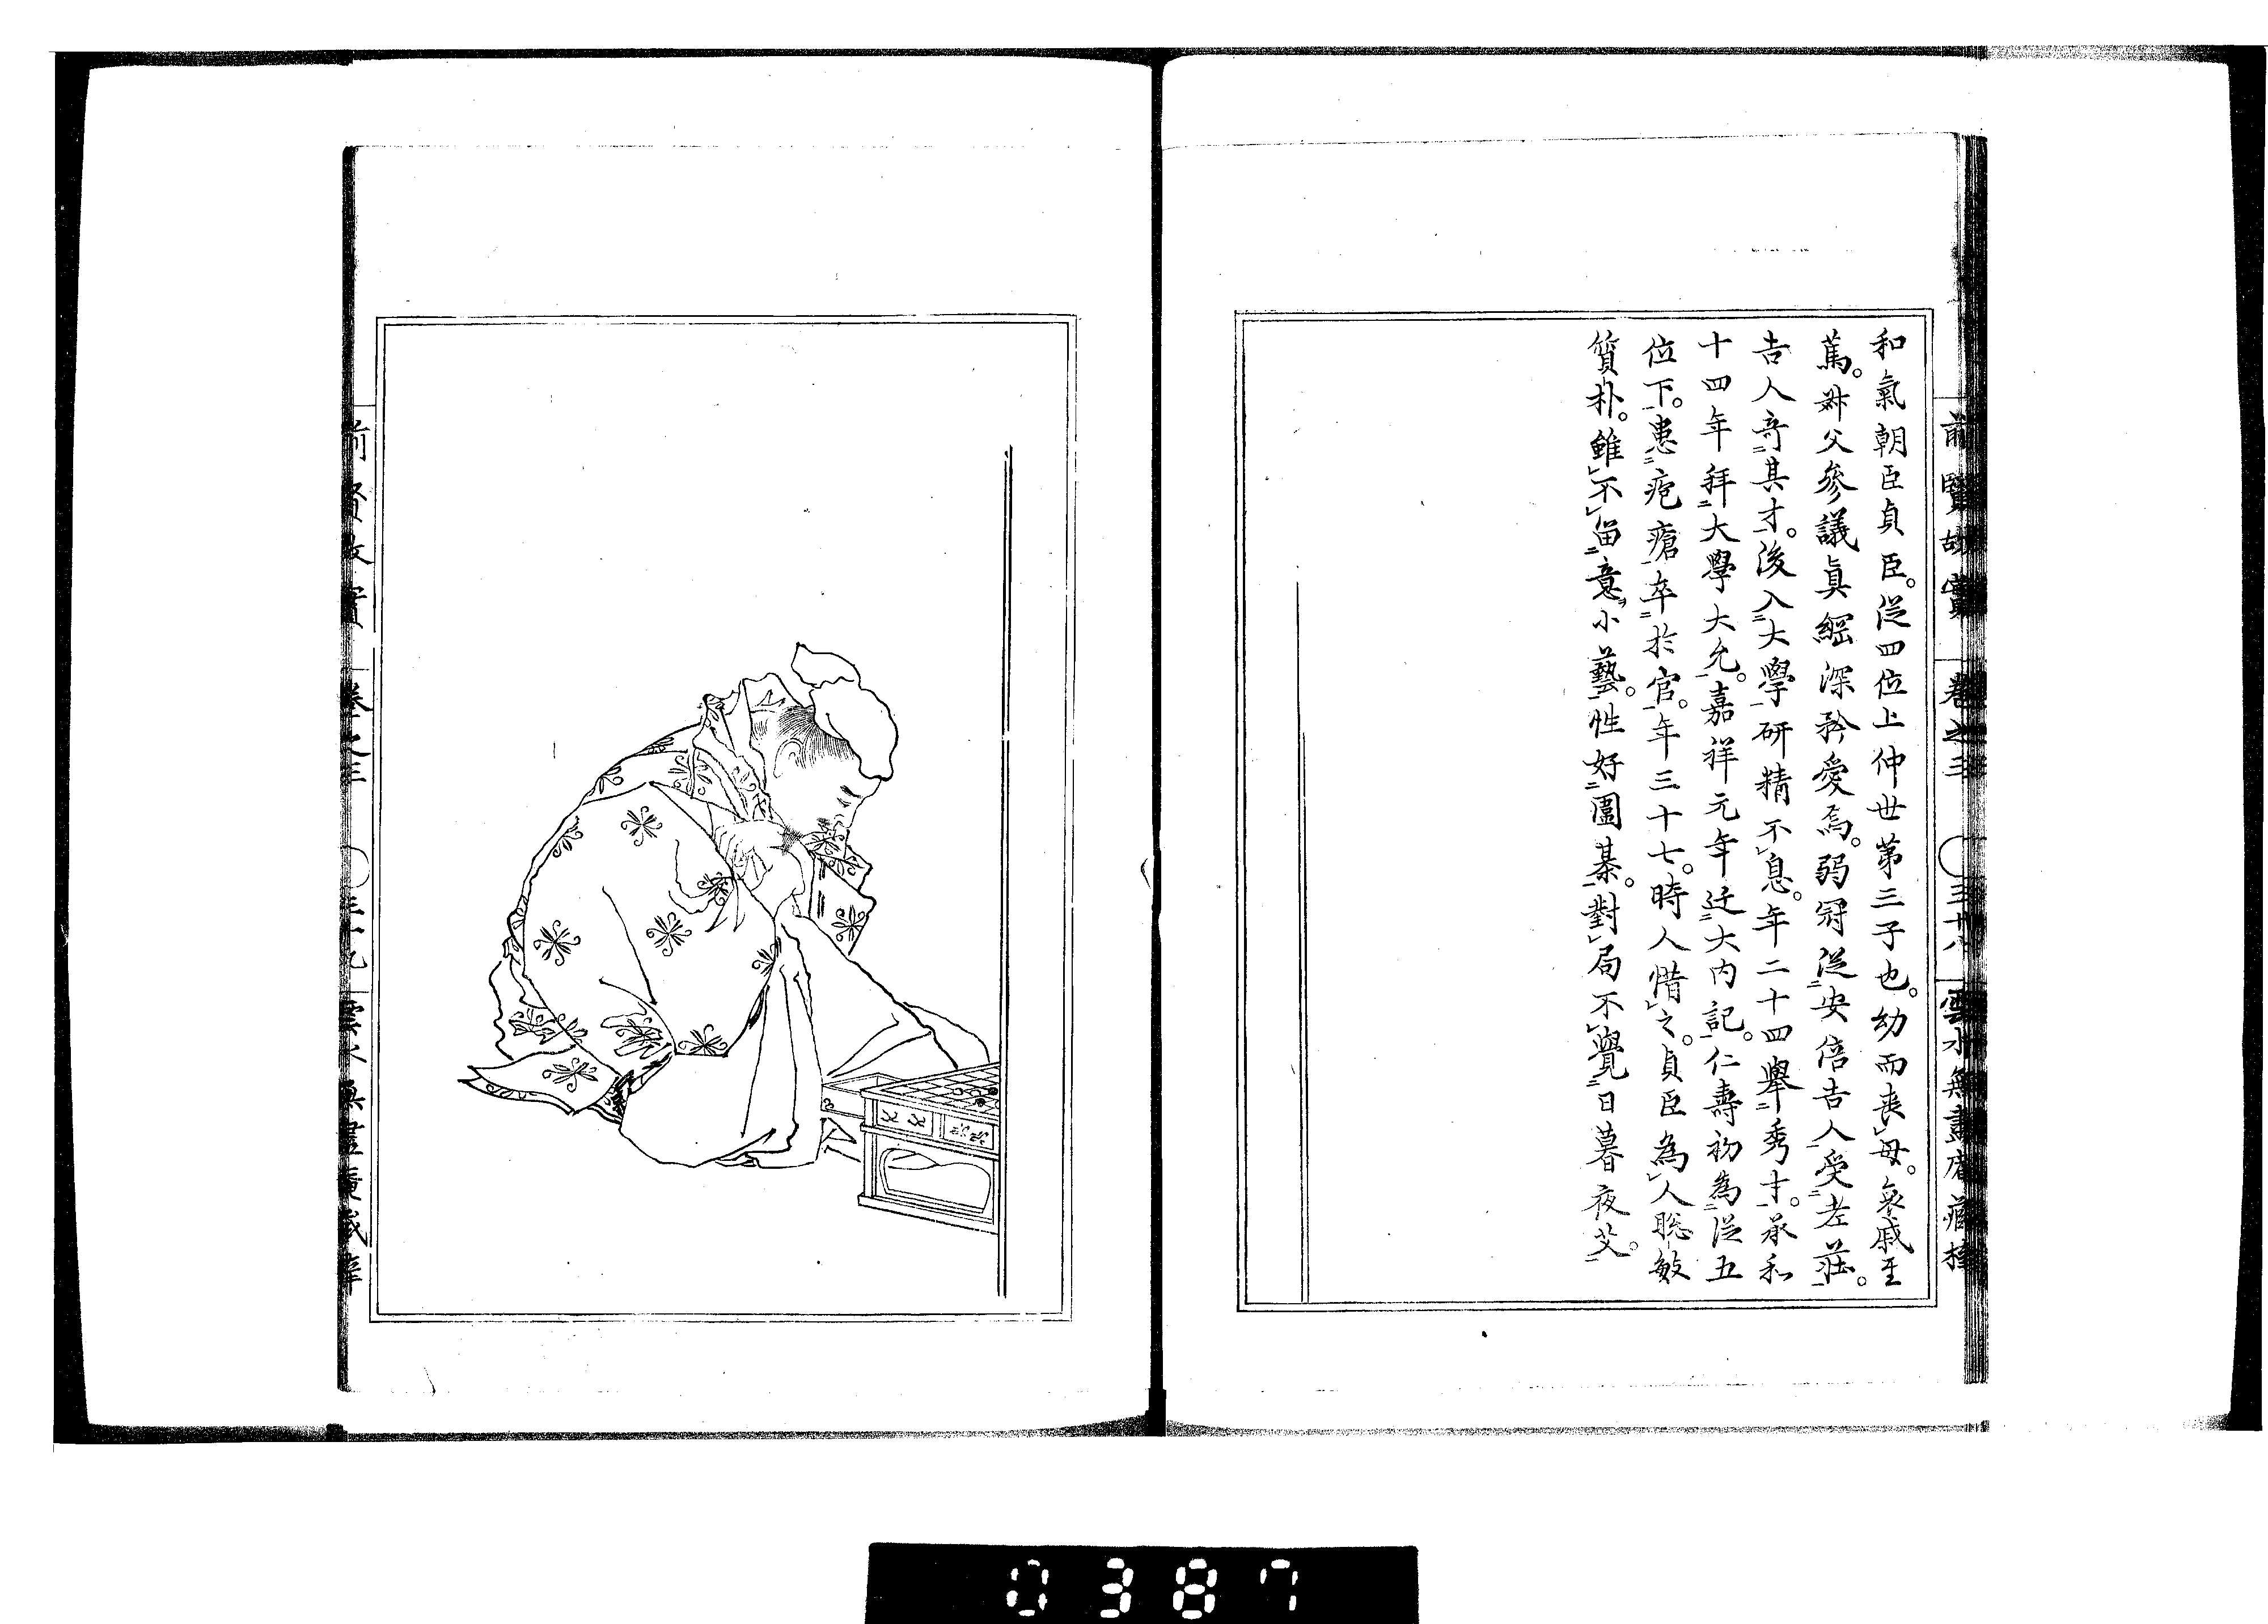 前賢故實 卷之三 三十八 雲水無盡庵藏梓
和氣朝臣貞臣。從四位上仲世第三子也。幼而喪母。哀戚至
篤。叔父參議眞綱深矜愛焉。弱冠從安倍吉人受老莊。
吉人奇其才。後入大學研精不息。年二十四舉秀才。承和
十四年拜大學大允。嘉祥元年迁大內記。仁壽初為從五
位下。患疱瘡卒於官。年三十七。時人惜之。貞臣為人聡敏
質朴。雖不畱意小藝。性好圍棊。對局不覺日暮夜艾。
前賢故實 卷之三 三十九 雲水無盡庵藏梓
0387